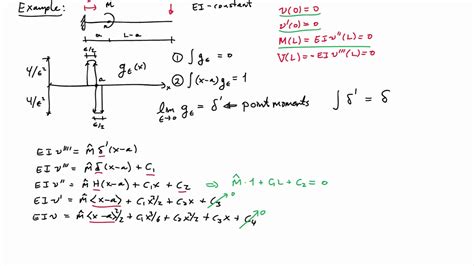 Example:
M̂
EI - constant
a
L-a
v(0) = 0
v'(0) = 0
M(L) = EI v''(L) = 0
V(L) = -EI v'''(L) = 0
ε/2
4/ε²
4/ε²
a
x
g_ε(x)
ε/2
① ∫ g_ε = 0
② ∫ (x-a) g_ε = 1
lim g_ε = δ' ⇐ point moments
ε→0
∫ δ' = δ
EI v'''' = M̂ δ'(x-a)
EI v''' = M̂ δ(x-a) + C₁
EI v'' = M̂ H(x-a) + C₁x + C₂ ⇒ M̂·1 + C₁L + C₂ = 0
EI v' = M̂ <x-a> + C₁x²/2 + C₂x + C₃ 0
EI v = M̂ <x-a>²/2 + C₁x³/6 + C₂x²/2 + C₃x + C₄ 0